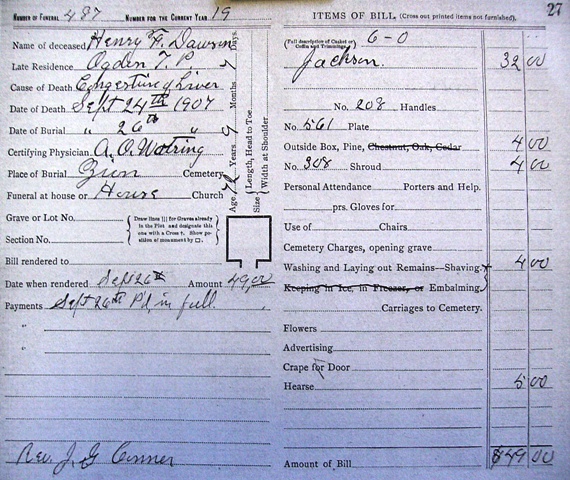 NUMBER OF FUNERAL 487 NUMBER FOR THE CURRENT YEAR 19
Name of deceased Henry F. Dawson
Late Residence Ogden T. P
Cause of Death Congestion of Liver
Date of Death Sept 24th 1907
Date of Burial " 26th "
Certifying Physician A. O. Wotring
Place of Burial Zion Cemetery
Funeral at house or House Church
Age, Years Months Days.
Size { Length, Head to Toe
Width at Shoulder
Grave or Lot No.
Section No.
{ Draw lines ||| for Graves already in the Plot and designate this one with a Cross †. Show position of monument by □. }
Bill rendered to
Date when rendered Sept 26th Amount 49.00
Payments Sept 26th P'd in full.
"
"
Rev. J. G Conner
ITEMS OF BILL. (Cross out printed items not furnished). 27
(Full description of Casket or Coffin and Trimmings.) 6-0
Jackson. 32 00
No. 208 Handles
No. 561 Plate
Outside Box, Pine, Chestnut, Oak, Cedar 4 00
No. 308 Shroud 4 00
Personal Attendance Porters and Help.
prs. Gloves for
Use of Chairs
Cemetery Charges, opening grave
Washing and Laying out Remains—Shaving 4 00
Keeping in Ice, in Freezer, or Embalming
Carriages to Cemetery.
Flowers
Advertising
Crape for Door
Hearse 5 00
Amount of Bill $49 00